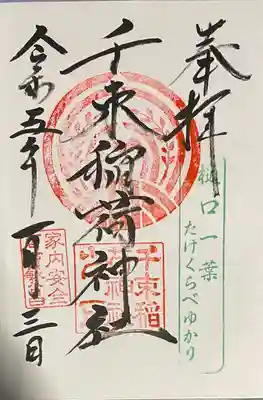 奉拝
樋口一葉
たけくらべゆかり
千束稲荷神社
千束稲
荷神社
令和五年
一月三日
家内安全